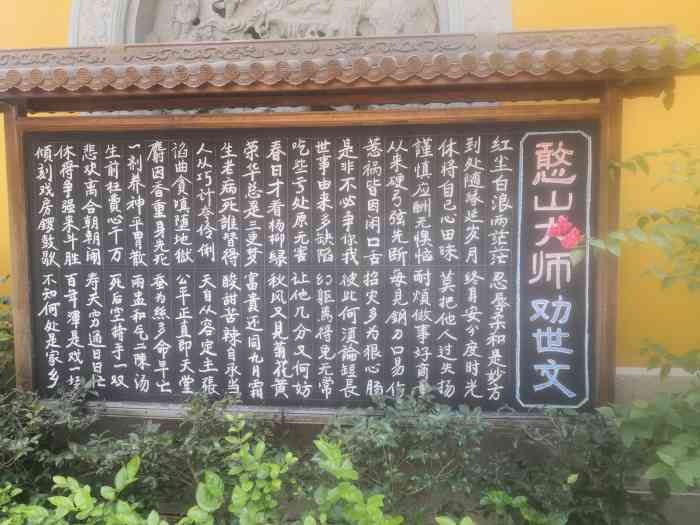 憨山大师劝世文
红尘白浪两茫茫 忍辱柔和是妙方
到处随缘延岁月 终身安分度时光
休将自己心田昧 莫把他人过失扬
謹慎应酬无懊恼 耐煩做事好商量
从来硬弓弦先断 每見鋼刀口易伤
惹禍皆因闲口舌 招灾多为狠心肠
是非不必争你我 彼此何須論短長
世事由来多缺陷 幻軀焉得免无常
吃些亏处原无害 让他几分又何妨
春日才看杨柳緑 秋风又見菊花黄
荣华总是三更梦 富貴还同九月霜
生老病死誰替得 酸甜苦辣自承当
人从巧计夸伶俐 天自从容定主張
谄曲貪嗔堕地獄 公平正直即天堂
麝因香重身先死 蚕为絲多命早亡
一剂养神平胃散 两盅和气二陳汤
生前枉費心千万 死后空持手一双
悲欢离合朝朝闹 寿夭穷通日日忙
休得争强来斗胜 百年渾是戏一場
傾刻戏房鑼鼓歇 不知何处是家乡